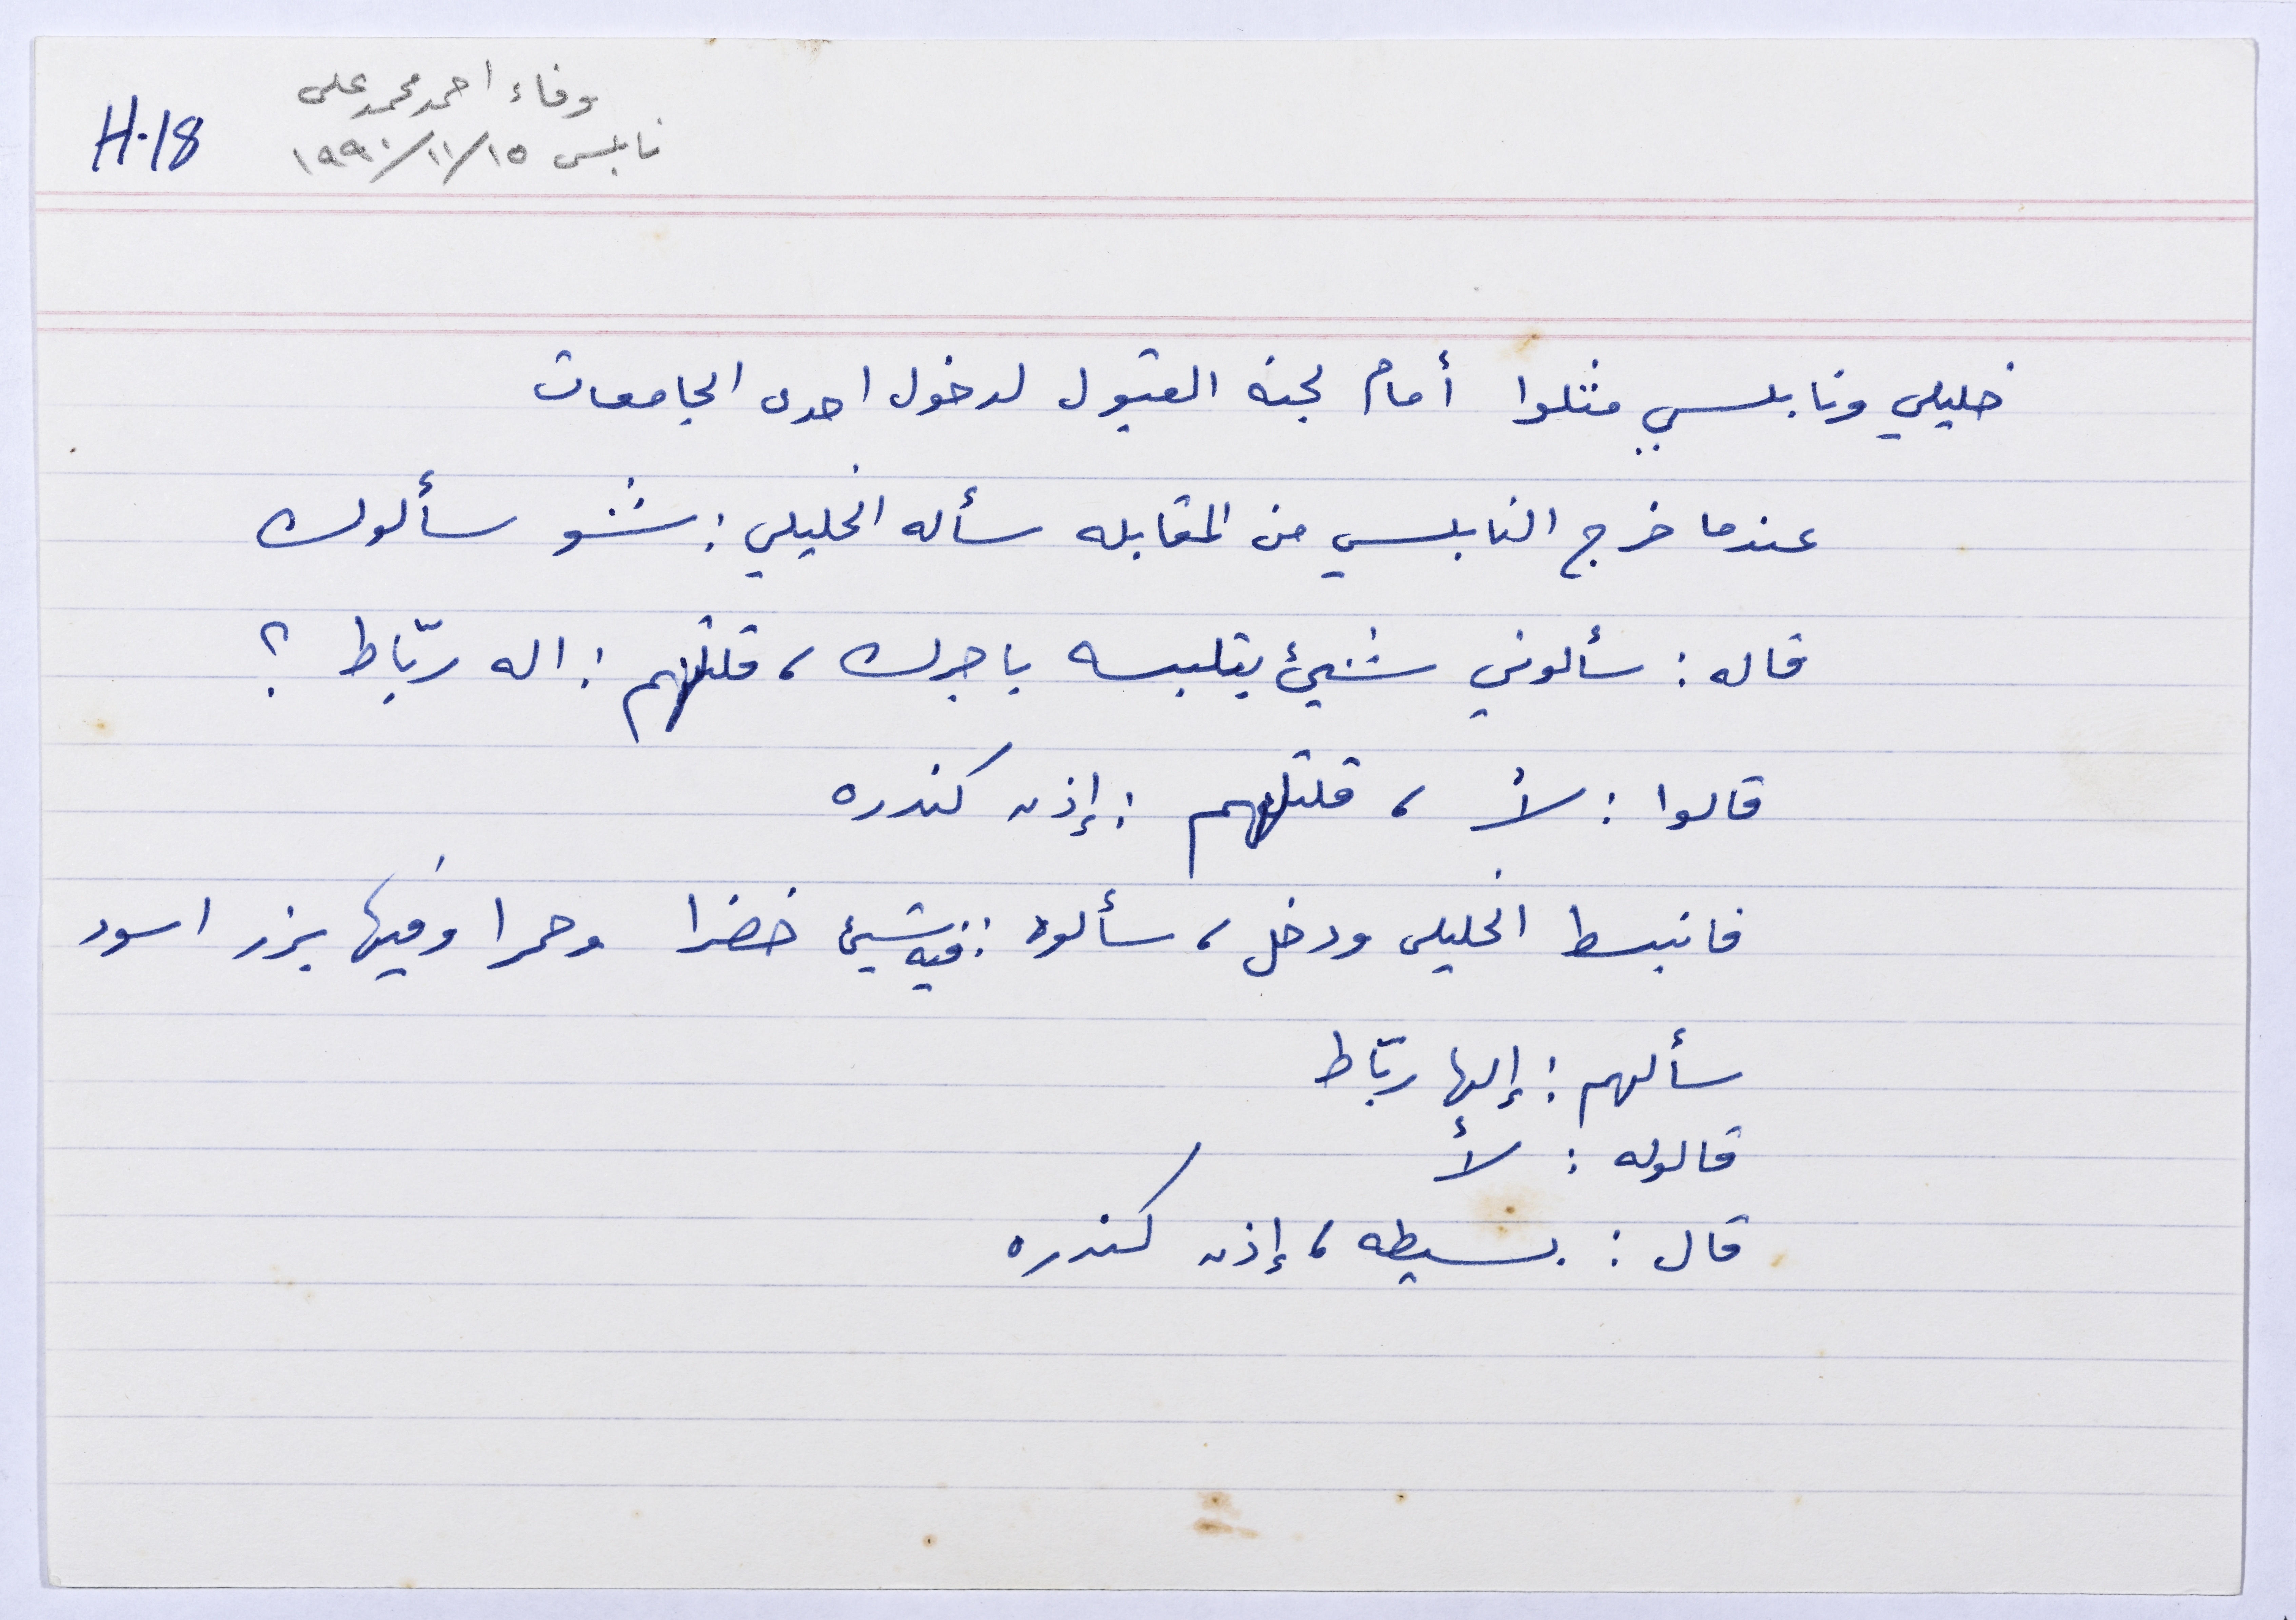 وفاء احمد محمد علي
نابلس ١٥/١١/١٩٩٠
H.18
خليلي ونابلسي مثلوا أمام لجنه القبول لدخول احدى الجامعات
عندما خرج النابلسي من المقابله سأله الخليلي : شو سألوك
قاله : سألوني شيئ بتلبسه باجرك ، قلتلهم : اله ربّاط ؟
قالوا : لأ ، قلتلهم : إذن كندره
فانبسط الخليلي ودخل ، سألوه : فيه شيئ خضرا وحمرا وفيها بزر اسود
سألهم : إلها ربّاط
قالوله : لأ
قال : بسيطه ، إذن كندره